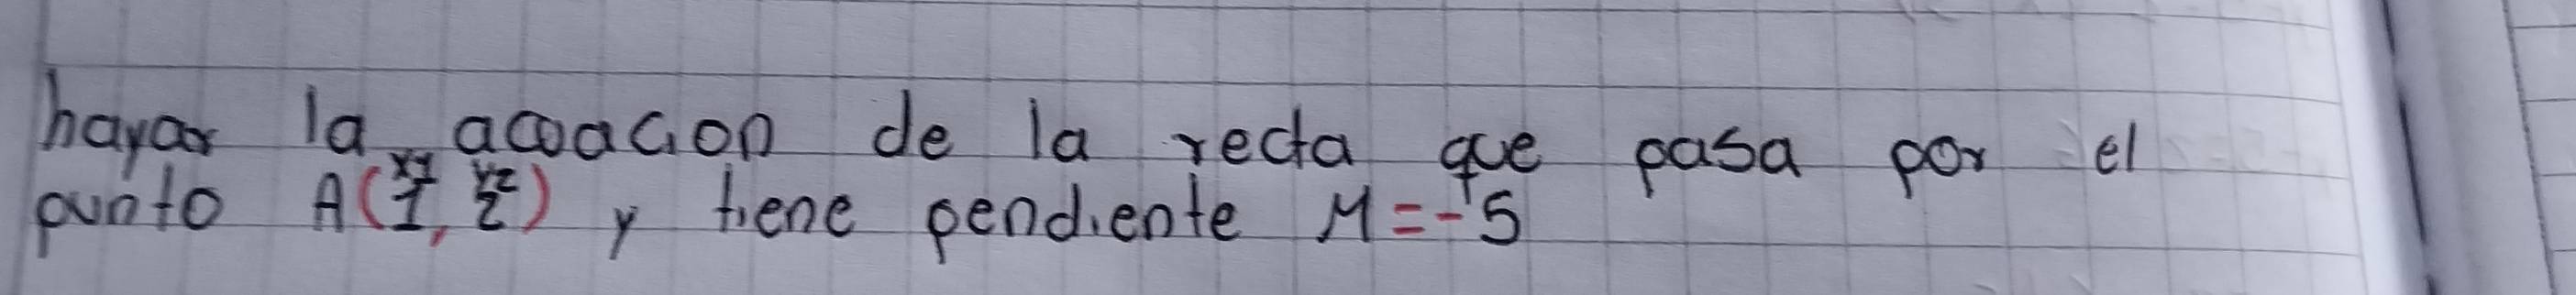 hayar la acoacion de la recta que pasa por el
x1 y2
punto A(1, 2) y tiene pendiente M=-5